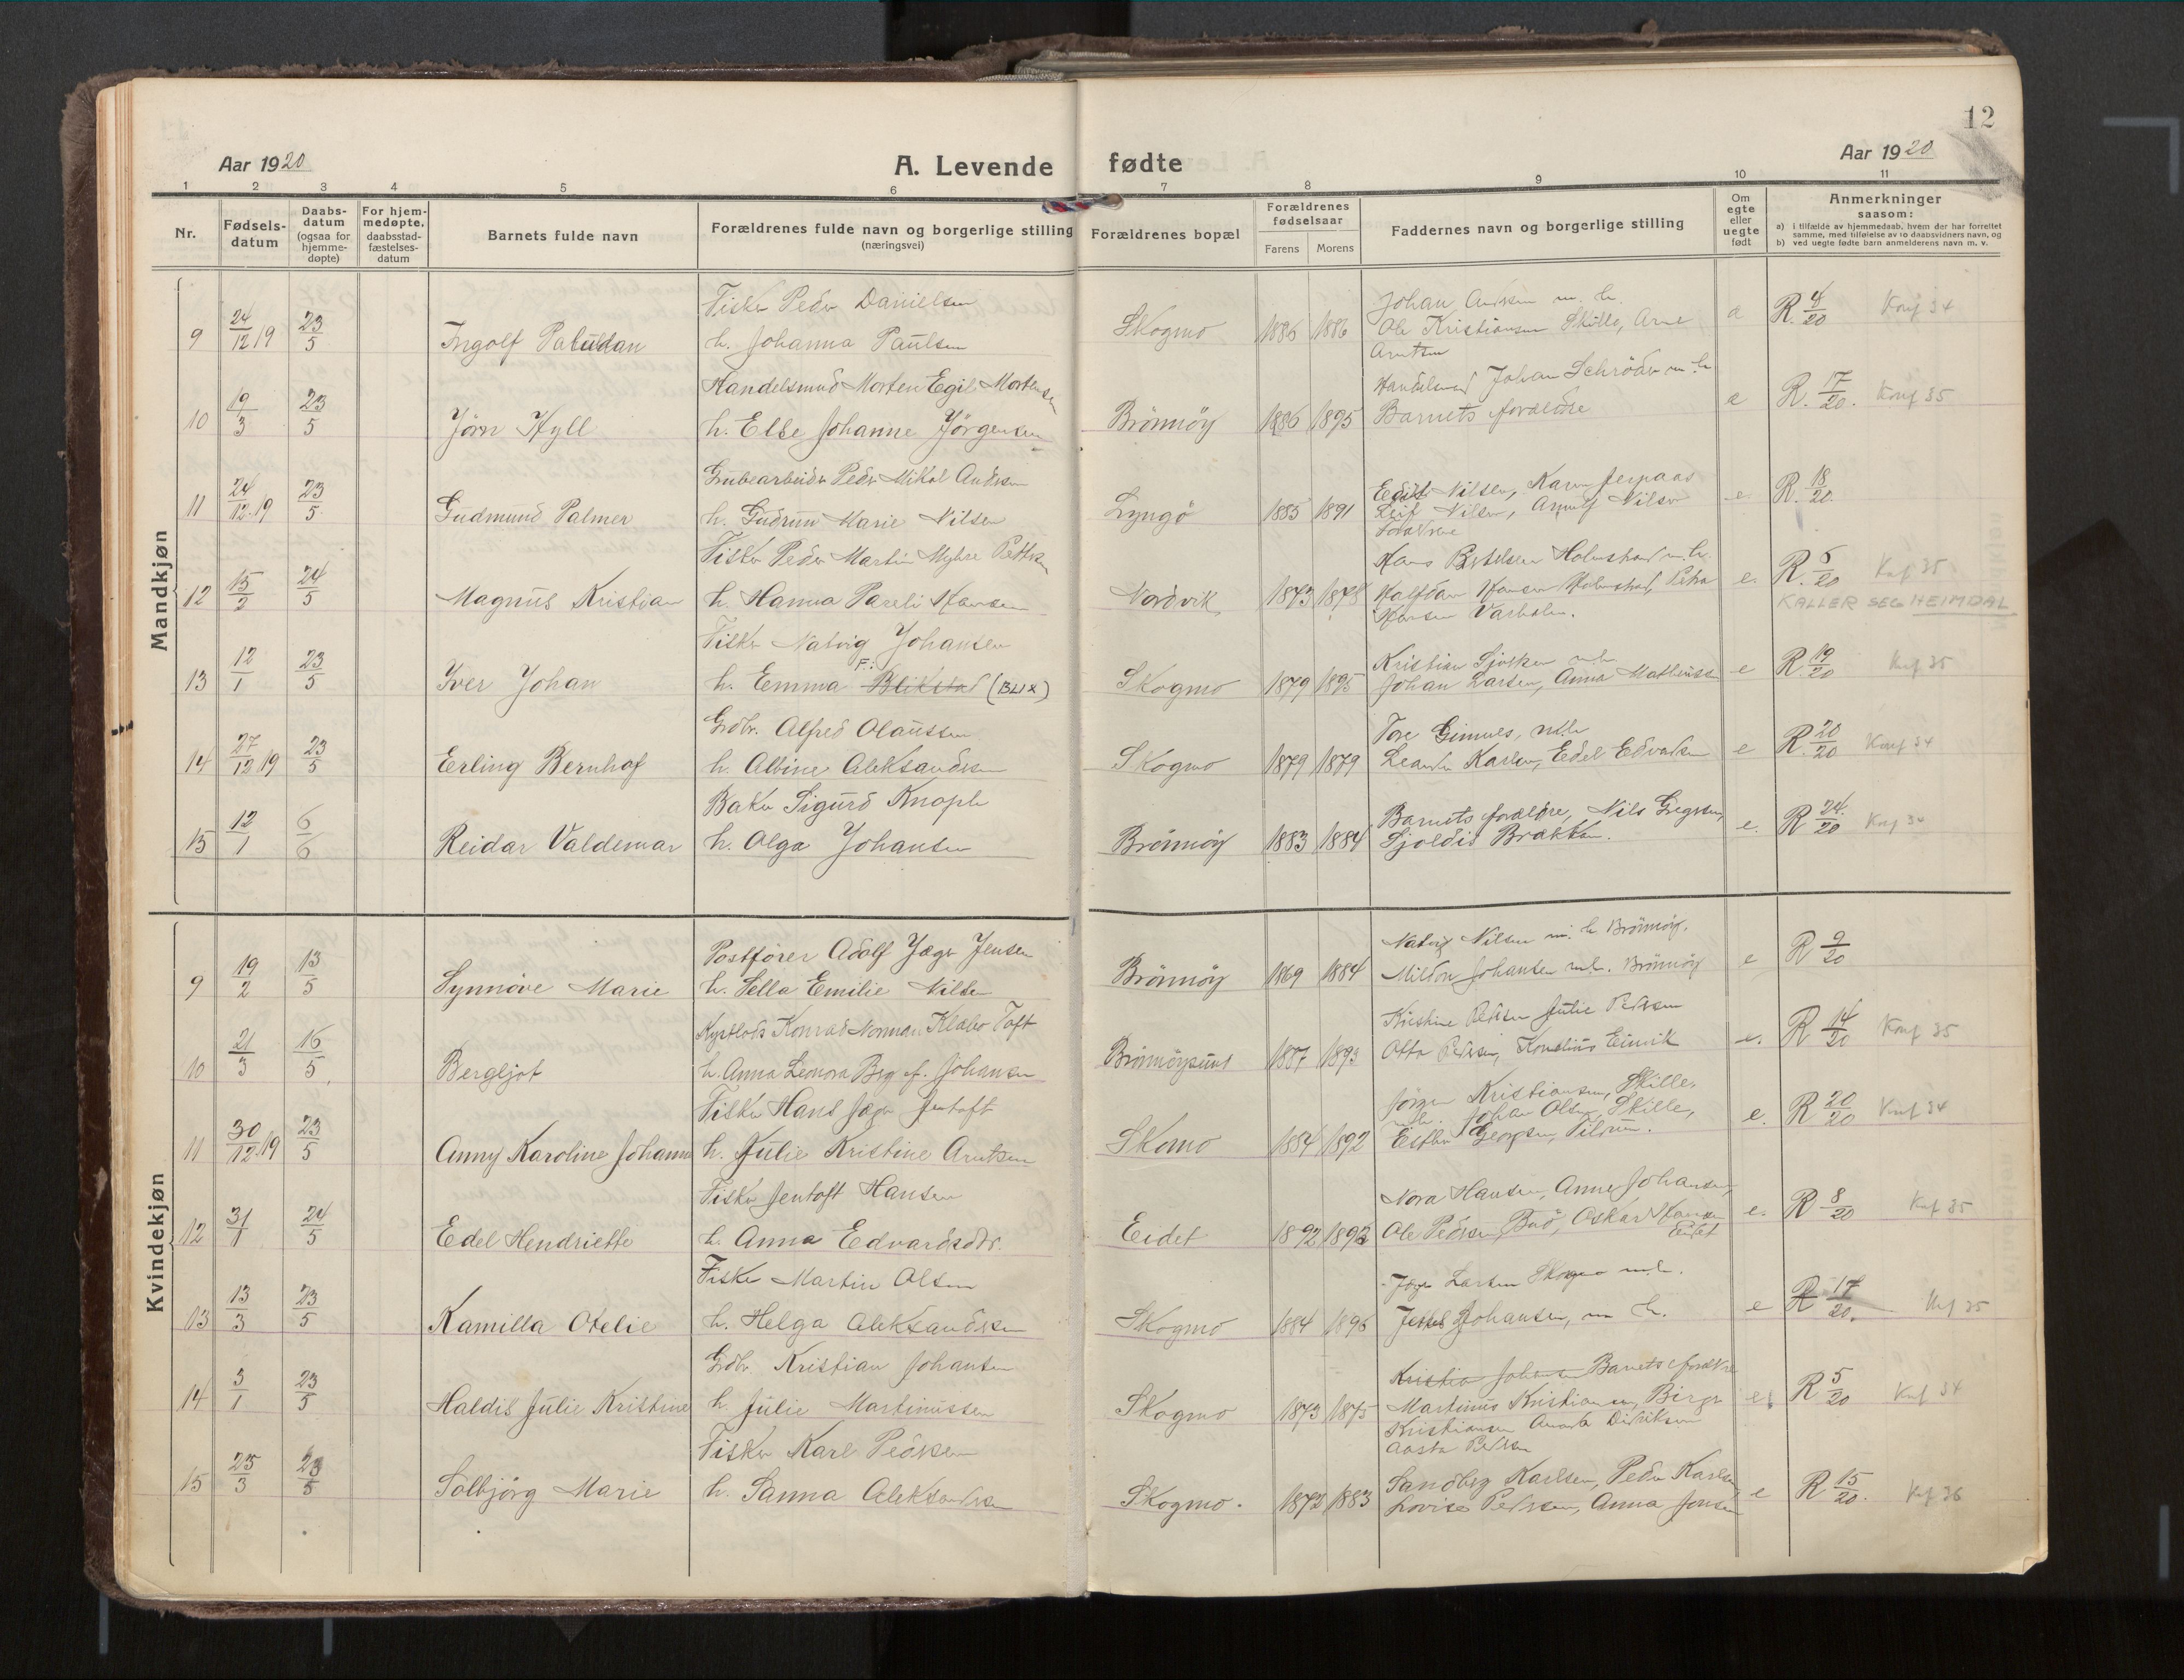 12
Aar 1920
A. Levende fødte
Aar 1920
1 2 3 4 5 6 7 8 9 10 11
Nr.
Fødsels-
datum
Daabs-
datum
(ogsaa for
hjemme-
døpte)
For hjem-
medøpte,
daabsstad-
fæstelses-
datum
Barnets fulde navn
Forældrenes fulde navn og borgerlige stilling
(næringsvei)
Forældrenes bopæl
Forældrenes
fødselsaar
Farens Morens
Faddernes navn og borgerlige stilling
Om
egte
eller
uegte
født
Anmerkninger
saasom:
a) i tilfælde av hjemmedaab, hvem der har forrettet
samme, med tilføielse av to daabsvidners navn, og
b) ved uegte fødte barn anmelderens navn m. v.
Mandkjøn
Fisker Peder Danielsen
Johan m. h.
9 24/12 19 23/5 Ingolf Paludan h. Johanna Paulsen Skogmo 1886 1886 Ole Kristiansen Skille, Arne R. 4/20 Konf 34
Arntsen
Handelsmnd Morten Egil Mortensen
Johan Schröder m. h.
10 19/3 23/5 Jörn Hyll h. Else Johanne Jörgensen Brönnöy 1886 1895 Barnets foreldre R. 17/20. Konf 35
Grubearbeider Peder Mikal Andersen
11 24/12.19 23/5 Gudmund Palmer h. Gudrun Marie Nilsen Lyngö 1885 1891 Leif Nilsen, Nilsen e R. 18/20.
Fisker Peder Martin Myhre Pettersen
Hans Holmstad m. h.
12 15/2 24/5 Magnus Kristian h. Hanna Pareli Hansen Nordvik 1873 1878 Halfdan Hansen Holmstad, Petra e. R. 6/20 Knf 35
Hansen
KALLER SEG HEIMDAL
Fisker Natvig Johansen
F.:
Kristian m. h.
13 12/1 23/5 Iver Johan h. Emma Blikstad (BLIX) Skogmo 1879 1895 Johan Larsen, Anna e R. 19/20 Knf 35
Grdbr. Alfred Olaussen
Tore Gimnes, m. h.
14 27/12 19 23/5 Erling Bernhof h. Albine Aleksandersen Skogmo 1879 1879 Karlsen, Edel Edvardsen e R. 20/20 Konf 34
Baker Sigurd Knoph
Barnets foreldre, Nils
15 12/1 6/6 Reidar Valdemar h. Olga Johansen Brönnöy 1883 1884 e. R 24/20 Knf 34
Kvindekjøn
Postförer Adolf Jæger Jensen
Natvig Nilsen m. h Brönnöy.
9 19/2 13/5 Synnöve Marie h. Sella Emilie Nilsen Brönnöy 1869 1884 Johansen m. h. Brönnöy e R 9/20
Kystlods Konrad Norman Klabo Toft
Kristine Julie Pedersen
10 21/3 16/5 Bergljot h. Anna Leonora Brg f. Johansen Brönnöysund 1887 1893 Otto Pedersen, e. R 14/20 Konf 35
Fisker Hans Jæger Jentoft
Jörgen Kristiansen, Skille,
m. h. Johan Olsen, Skille,
11 30/12.19 23/5 Anny Karoline Johanne h. Julie Kristine Arntsen Skomo 1884 1892 Georgsen, e. R 20/20 Knf 34
Fisker Jentoft Hansen
Nora Hansen, Anne Johansen,
12 31/1 24/5 Edel Hendriette h. Anna Edvardsdtr. Eidet 1892 1892 Ole Pedersen, Oskar Hansen e. R 8/20 Knf 35
Eidet
Fisker Martin Olsen
Larsen Skogmo m. h.
13 13/3 23/5 Kamilla Otelie h. Helga Aleksandersen Skogmo 1884 1896 Johansen, m h. e R 17/20. Knf 35
Grdbr Kristian Johansen
Kristian Johansen Barnets foreldre
14 3/1 23/5 Haldis Julie Kristine h. Julie Martinussen Skogmo 1873 1875 Martinus Kristiansen, Birger e. R 5/20 Knf 34
Kristiansen Didriksen
Aasta Pedersen
Fisker Karl Pedersen
Sandberg Karlsen, Peder Karlsen
15 25/3 23/5 Solbjörg Marie h. Sanna Aleksandersen Skogmo. 1872 1883 Lovise Pedersen, Anna e R 15/20. Knf 36